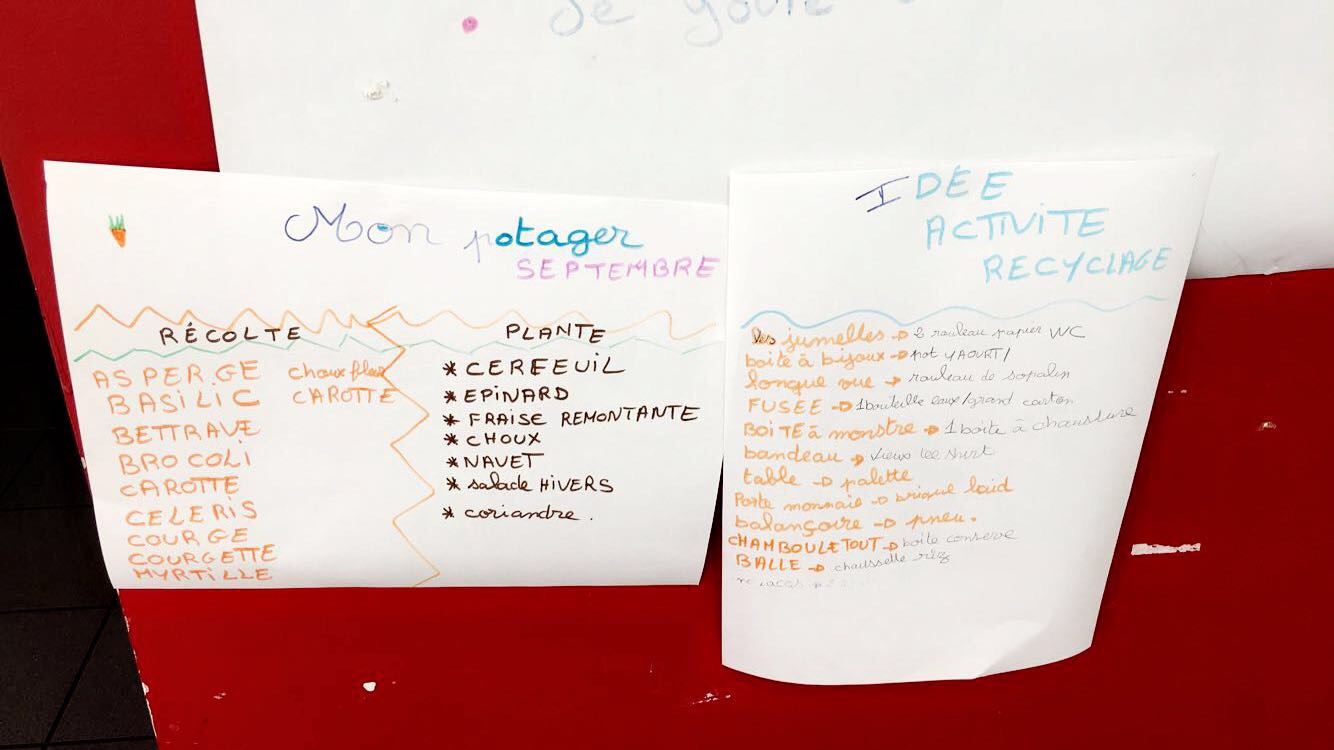 Je goûte
Mon potager
SEPTEMBRE
RÉCOLTE
ASPERGE choux fleur
BASILIC CAROTTE
BETTRAVE
BROCOLI
CAROTTE
CELERIS
COURGE
COURGETTE
MYRTILLE
PLANTE
* CERFEUIL
* EPINARD
* FRAISE REMONTANTE
* CHOUX
* NAVET
* salade HIVERS
* coriandre.
IDÉE
ACTIVITE
RECYCLAGE
les jumelles → 2 rouleau papier WC
boite à bijoux → pot YAOURT/
longue vue → rouleau de sopalin
FUSEE → 1 bouteille eaux/grand carton
BOITE à monstre → 1 boite à chaussure
bandeau → vieux tee shirt
table → palette
Porte monnaie → brique laid
balançoire → pneu.
CHAMBOULETOUT → boite conserve
BALLE → chaussette riz